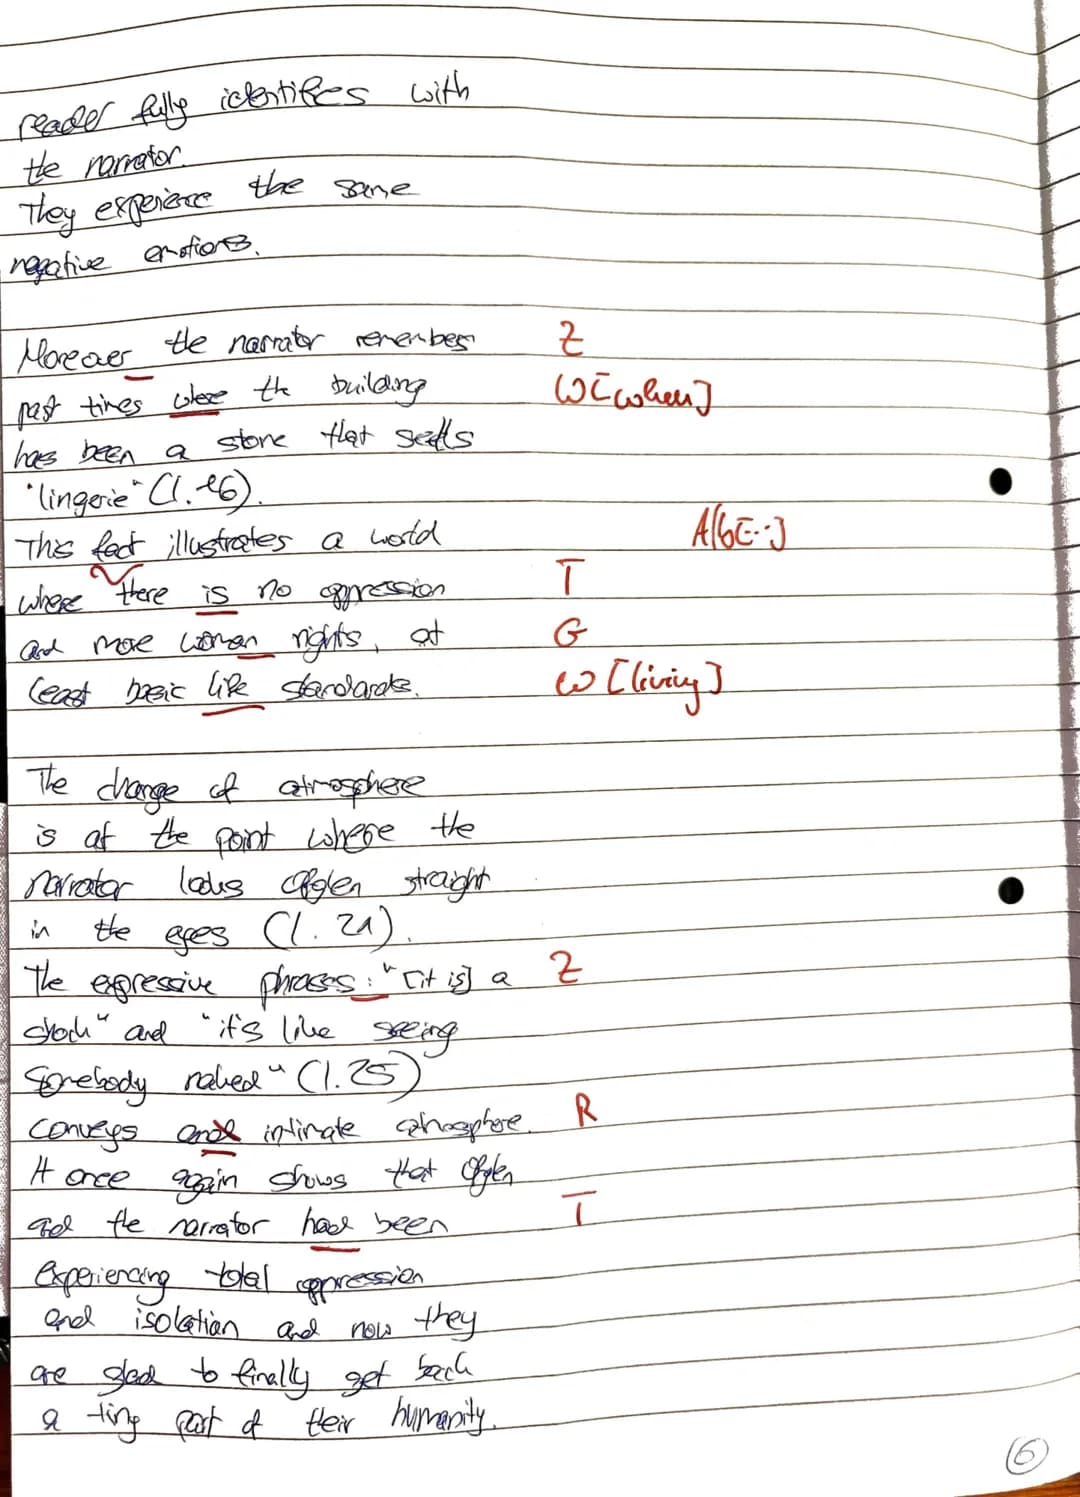 reader fully identifies with
the narrator.
They experience the same
negative emotions.
Moreover the narrator remembers Z
past times where the building W [when]
has been a store that sells
"lingerie" (l. 26).
This fact illustrates a world A/b[..]
where there is no oppression T
and more woman rights, at G
least basic life standards. W [living]
The change of atmosphere
is at the point where the
narrator looks Ofglen straight
in the eyes (l. 21).
The expressive phrases: "[it is] a Z
shock" and "it's like seeing
somebody naked" (l. 25)
conveys and intimate atmosphere. R
It once again shows that Ofglen
and the narrator had been T
experiencing total oppression
and isolation and now they
are glad to finally get back
a tiny part of their humanity.
6